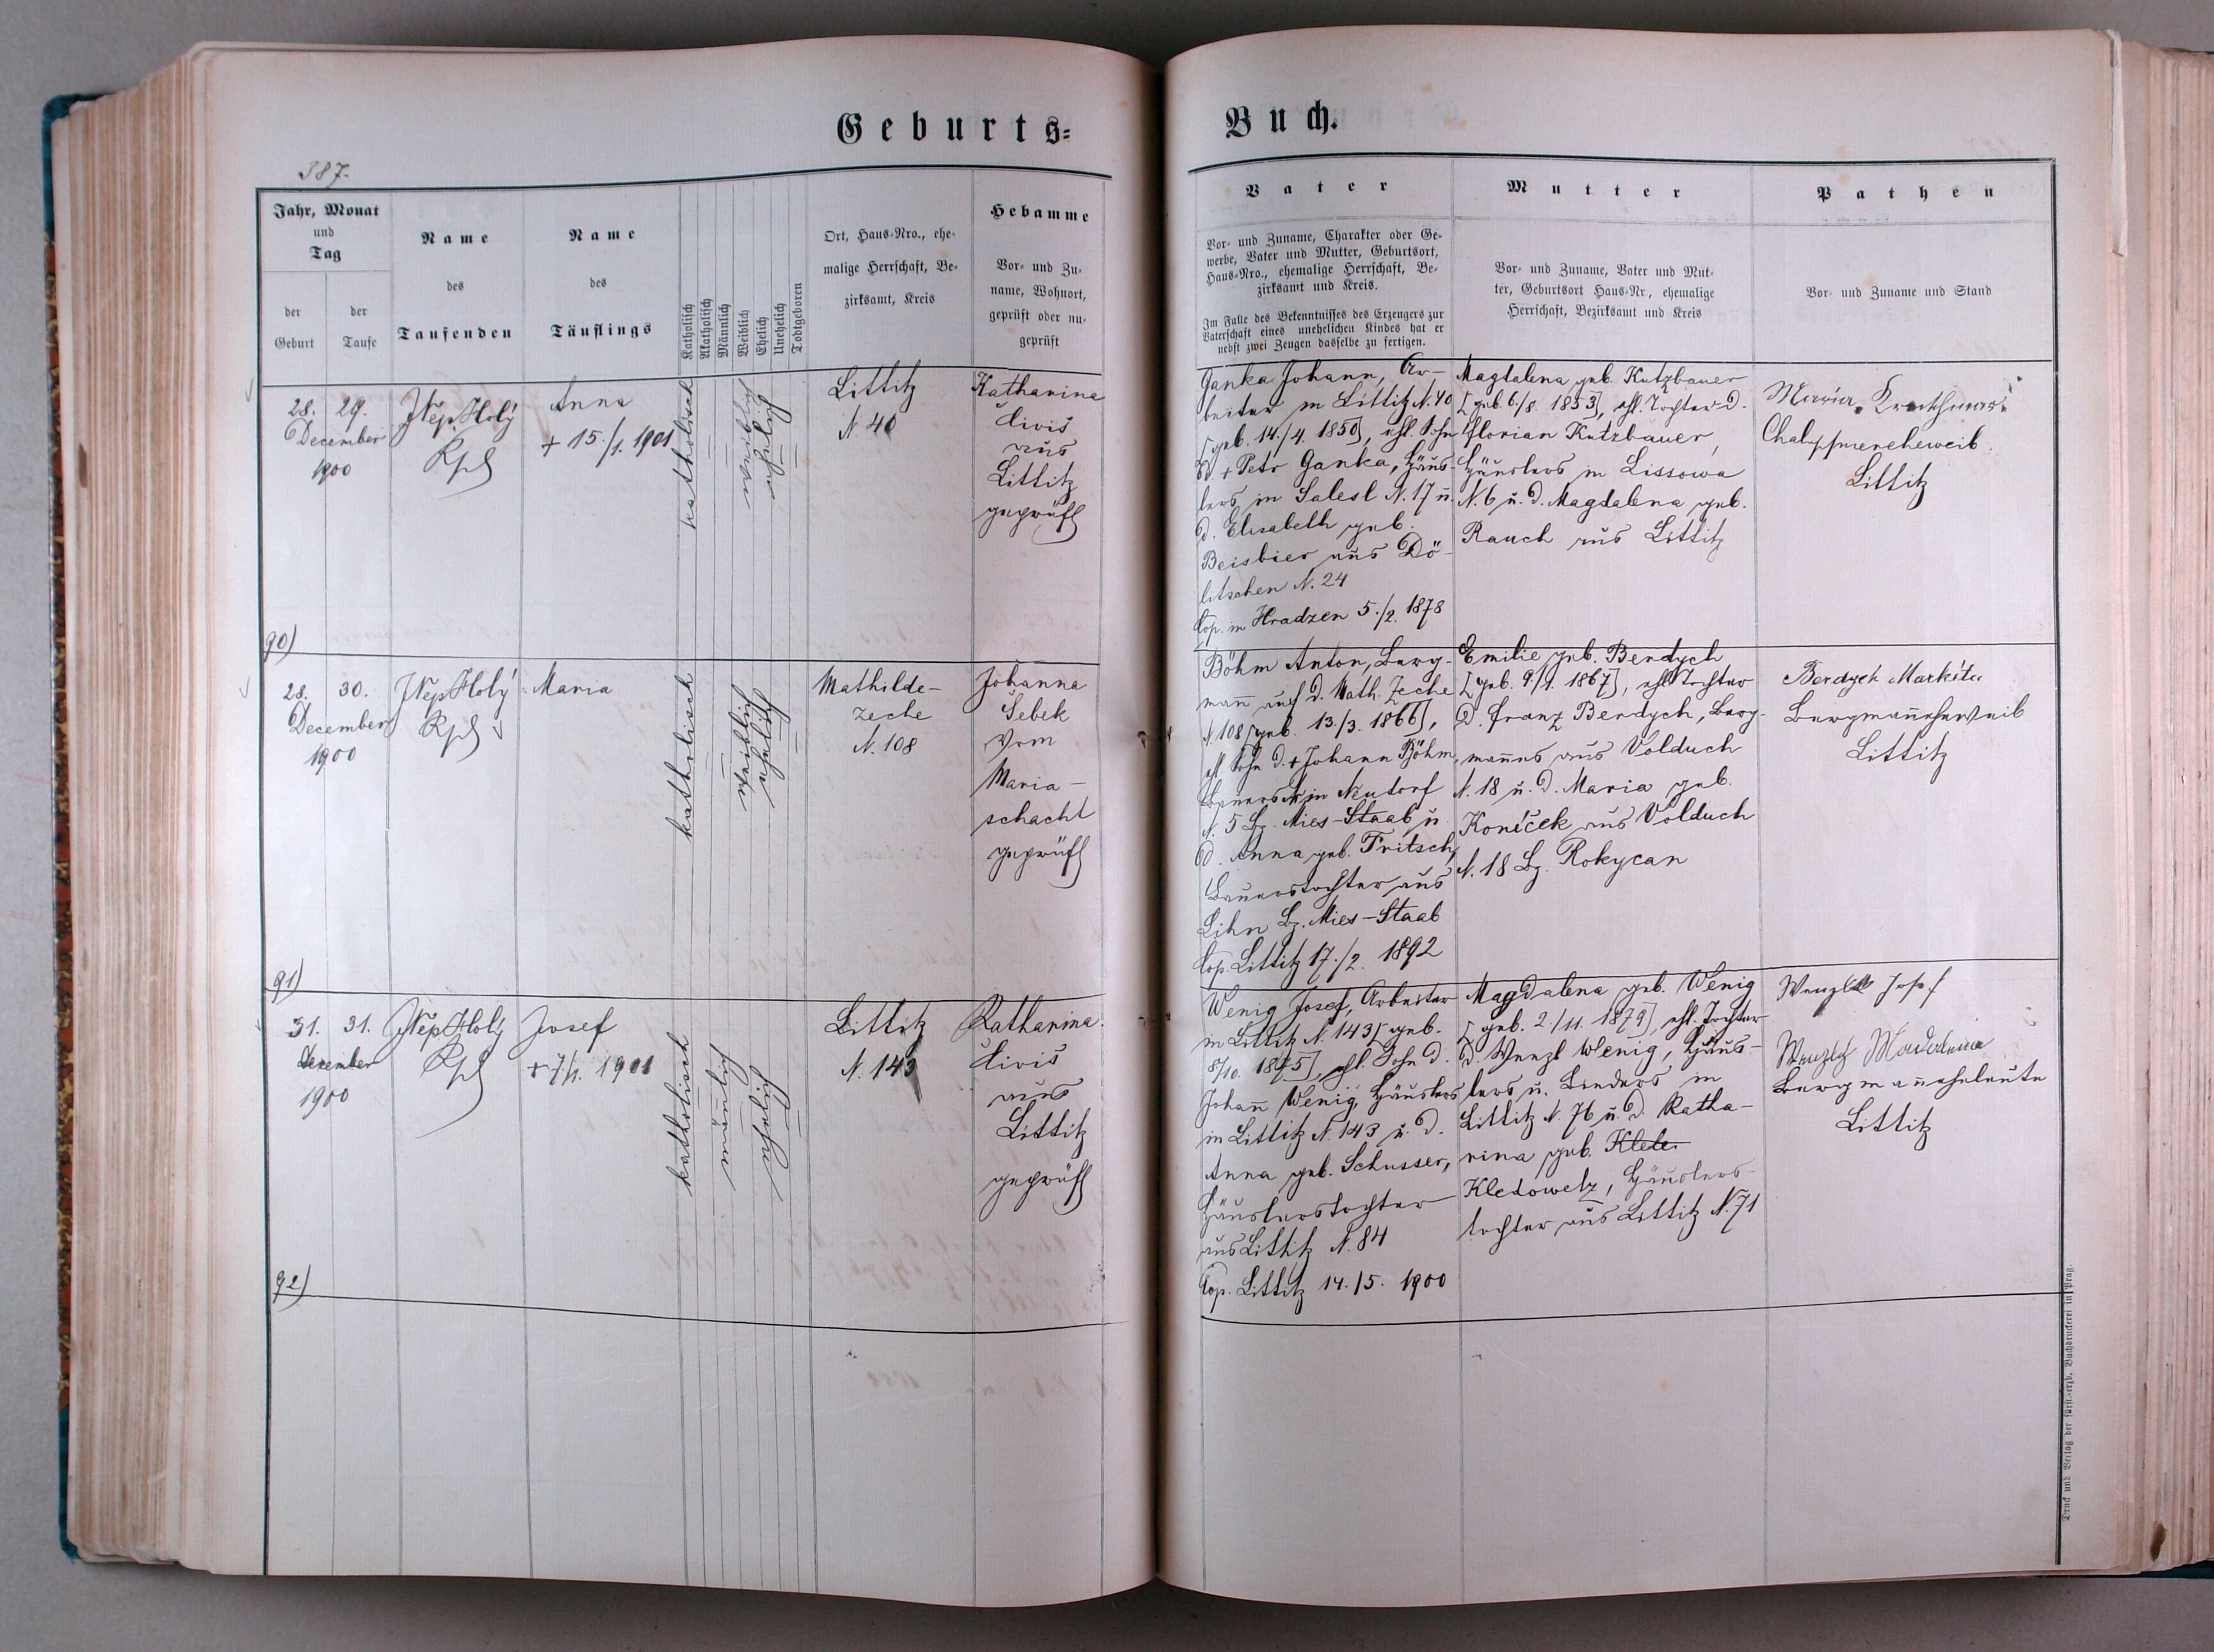 Geburts=
Buch.
387.
Jahr, Monat
und
Tag
der
Geburt
der
Taufe
Name
des
Taufenden
Name
des
Täuflings
Katholisch
Akatholisch
Männlich
Weiblich
Ehelich
Unehelich
Todtgeboren
Ort, Haus-Nro., ehe-
malige Herrschaft, Be-
zirksamt, Kreis
Hebamme
Vor- und Zu-
name, Wohnort,
geprüft oder un-
geprüft
Vater
Vor- und Zuname, Charakter oder Ge-
werbe, Vater und Mutter, Geburtsort,
Haus-Nro., ehemalige Herrschaft, Be-
zirksamt und Kreis.
Im Falle des Bekenntnisses des Erzeugers zur
Vaterschaft eines unehelichen Kindes hat er
nebst zwei Zeugen dasselbe zu fertigen.
Mutter
Vor- und Zuname, Vater und Mut-
ter, Geburtsort Haus-Nr., ehemalige
Herrschaft, Bezirksamt und Kreis
Pathen
Vor- und Zuname und Stand
28. 29.
December
1900
JNep. Holý
Kpl
Anna
+ 15./1. 1901
katholisch
weiblich
ehelich
Littitz
N. 40
Katharina
Civis
aus
Littitz
geprüft
Ganka Johann, Ar-
beiter in Littitz N. 40
[geb. 14./4. 1850], ehl. Sohn
d. + Petr Ganka, Häus-
lers in Salesl N. 17 u.
d. Elisabeth geb.
Beisbier aus Dö-
litschen N. 24
Cop. in Hradzen 5./2. 1878
Magdalena geb. Kutzbauer
[geb. 6./8. 1853], ehl. Tochter d.
Florian Kutzbauer,
Häuslers in Lissowa
N. 6 u. d. Magdalena geb.
Rauch aus Littitz
Maria
Littitz
90)
28. 30.
December
1900
JNep Holý
Kpl
Maria
katholisch
weiblich
ehelich
Mathilde-
zeche
N. 108
Johanna
Šebek
vom
Maria-
schacht
geprüft
Böhm Anton, Berg-
mann auf d. Math. Zeche
N. 108 [geb. 13./3. 1866],
ehl. Sohn d. + Johann Böhm,
Bauers in Neudorf
N. 5 Bz. Mies-Staab u.
d. Anna geb. Fritsch,
Bauerstochter aus
Lihn Bz. Mies-Staab
Cop. Littitz 17./2. 1892
Emilie geb. Berdych
[geb. 9./1. 1867], ehl. Tochter
d. Franz Berdych, Berg-
mannes aus Volduch
N. 18 u. d. Maria geb.
Koníček aus Volduch
N. 18 Bz. Rokycan
Berdych Markéta
Bergmannseheweib
Littitz
91)
31. 31.
December
1900
JNep Holý
Kpl
Josef
+ 7./1. 1901
katholisch
männlich
ehelich
Littitz
N. 143
Katharina
Civis
aus
Littitz
geprüft
Wenig Josef, Arbeiter
in Littitz N. 143 [geb.
8/10. 1875], ehl. Sohn d.
Johann Wenig, Häuslers
in Littitz N. 143 u. d.
Anna geb. Schusser,
Häuslerstochter
aus Littitz N. 84
Cop. Littitz 14./5. 1900
Magdalena geb. Wenig
[geb. 2./11. 1879], ehl. Tochter
d. Wenzl Wenig, Häus-
lers u. Binders in
Littitz N. 76 u. d. Katha-
rina geb. Klete
Kledowetz, Häuslers-
tochter aus Littitz N. 71
Josef
Madalena
Bergmannseheleute
Littitz
92)
Druck und Verlag der fürst.-erzb. Buchdruckerei in Prag.